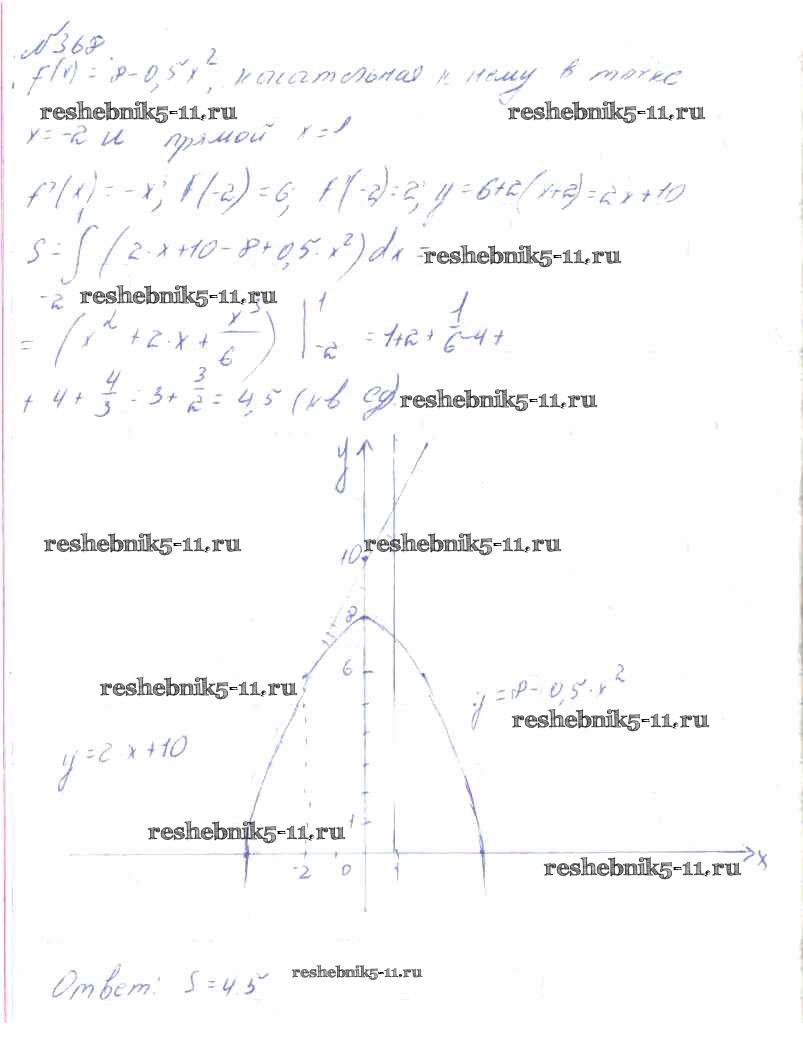 №368.
f(x) = 8-0,5x², касательная к нему в точке
reshebnik5-11.ru reshebnik5-11.ru
x=-2 и прямой x=1
f'(x)=-x; f(-2)=6; f'(-2)=2; y=6+2(x+2)=2x+10
S=∫₋₂¹(2·x+10-8+0,5·x²)dx = reshebnik5-11.ru
reshebnik5-11.ru
=(x²+2·x+x³/6)|₋₂¹ = 1+2+1/6-4+
+4+4/3=3+3/2=4,5 (кв ед) reshebnik5-11.ru
y
reshebnik5-11.ru 10 reshebnik5-11.ru
8
6
reshebnik5-11.ru y=8-0,5·x²
reshebnik5-11.ru
y=2·x+10
1
reshebnik5-11.ru
-2 0 1 x
reshebnik5-11.ru
reshebnik5-11.ru
Ответ: S=4.5